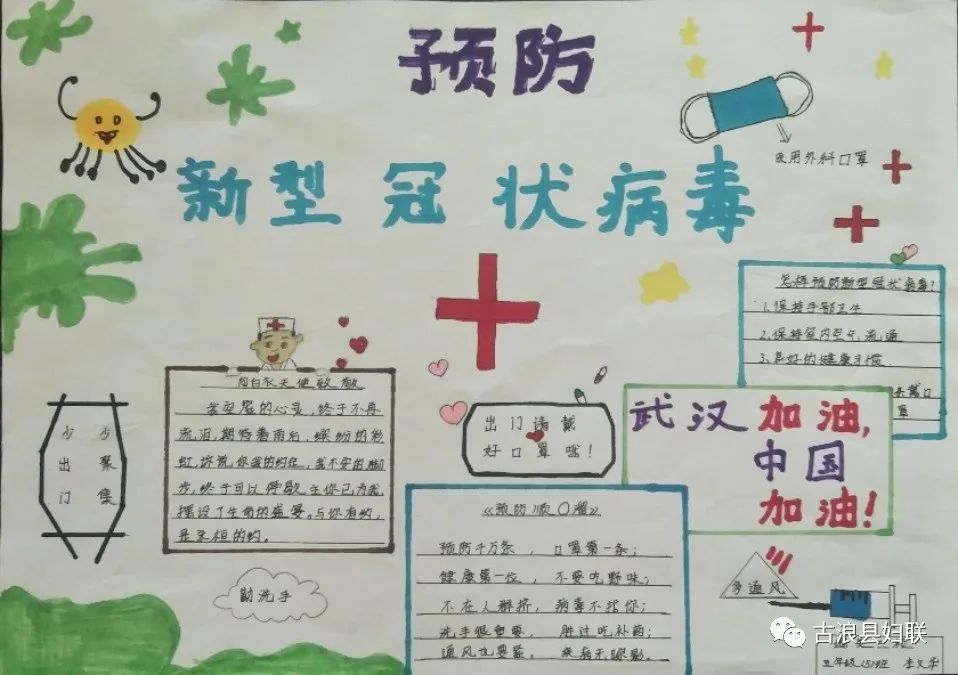 预防
新型冠状病毒
医用外科口罩
怎样预防新型冠状病毒?
1、保持手部卫生
2、保持室内空气流通
3、良好的健康习惯
向白衣天使致敬
的心灵,终于不再
流泪,期待着雨后,缤纷的彩
虹,诉说,你我的约定,我不安的脚
步,终于可以停歇
摆设了生命的盛宴。与你有约,
是永恒的约。
少出门
少聚集
出门请戴
好口罩哦!
武汉加油,
中国
加油!
《预防顺口溜》
预防千万条,口罩第一条;
健康第一位,不要吃野味;
不在人群挤,病毒不找你;
洗手很重要,胜过吃补药;
通风也要紧,疾病无踪影。
勤洗手
多通风
五年级(5)班 李文
古浪县妇联